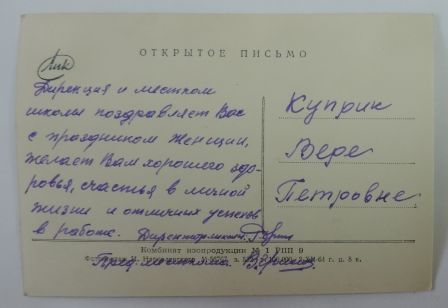 ОТКРЫТОЕ ПИСЬМО
Дирекция и местком
школы поздравляет Вас
с праздником женщин,
желает Вам хорошего здо-
ровья, счастья в личной
жизни и отличных успехов
в работе.
Куприк
Вере
Петровне
Комбинат изопродукции № 1 РПП 9